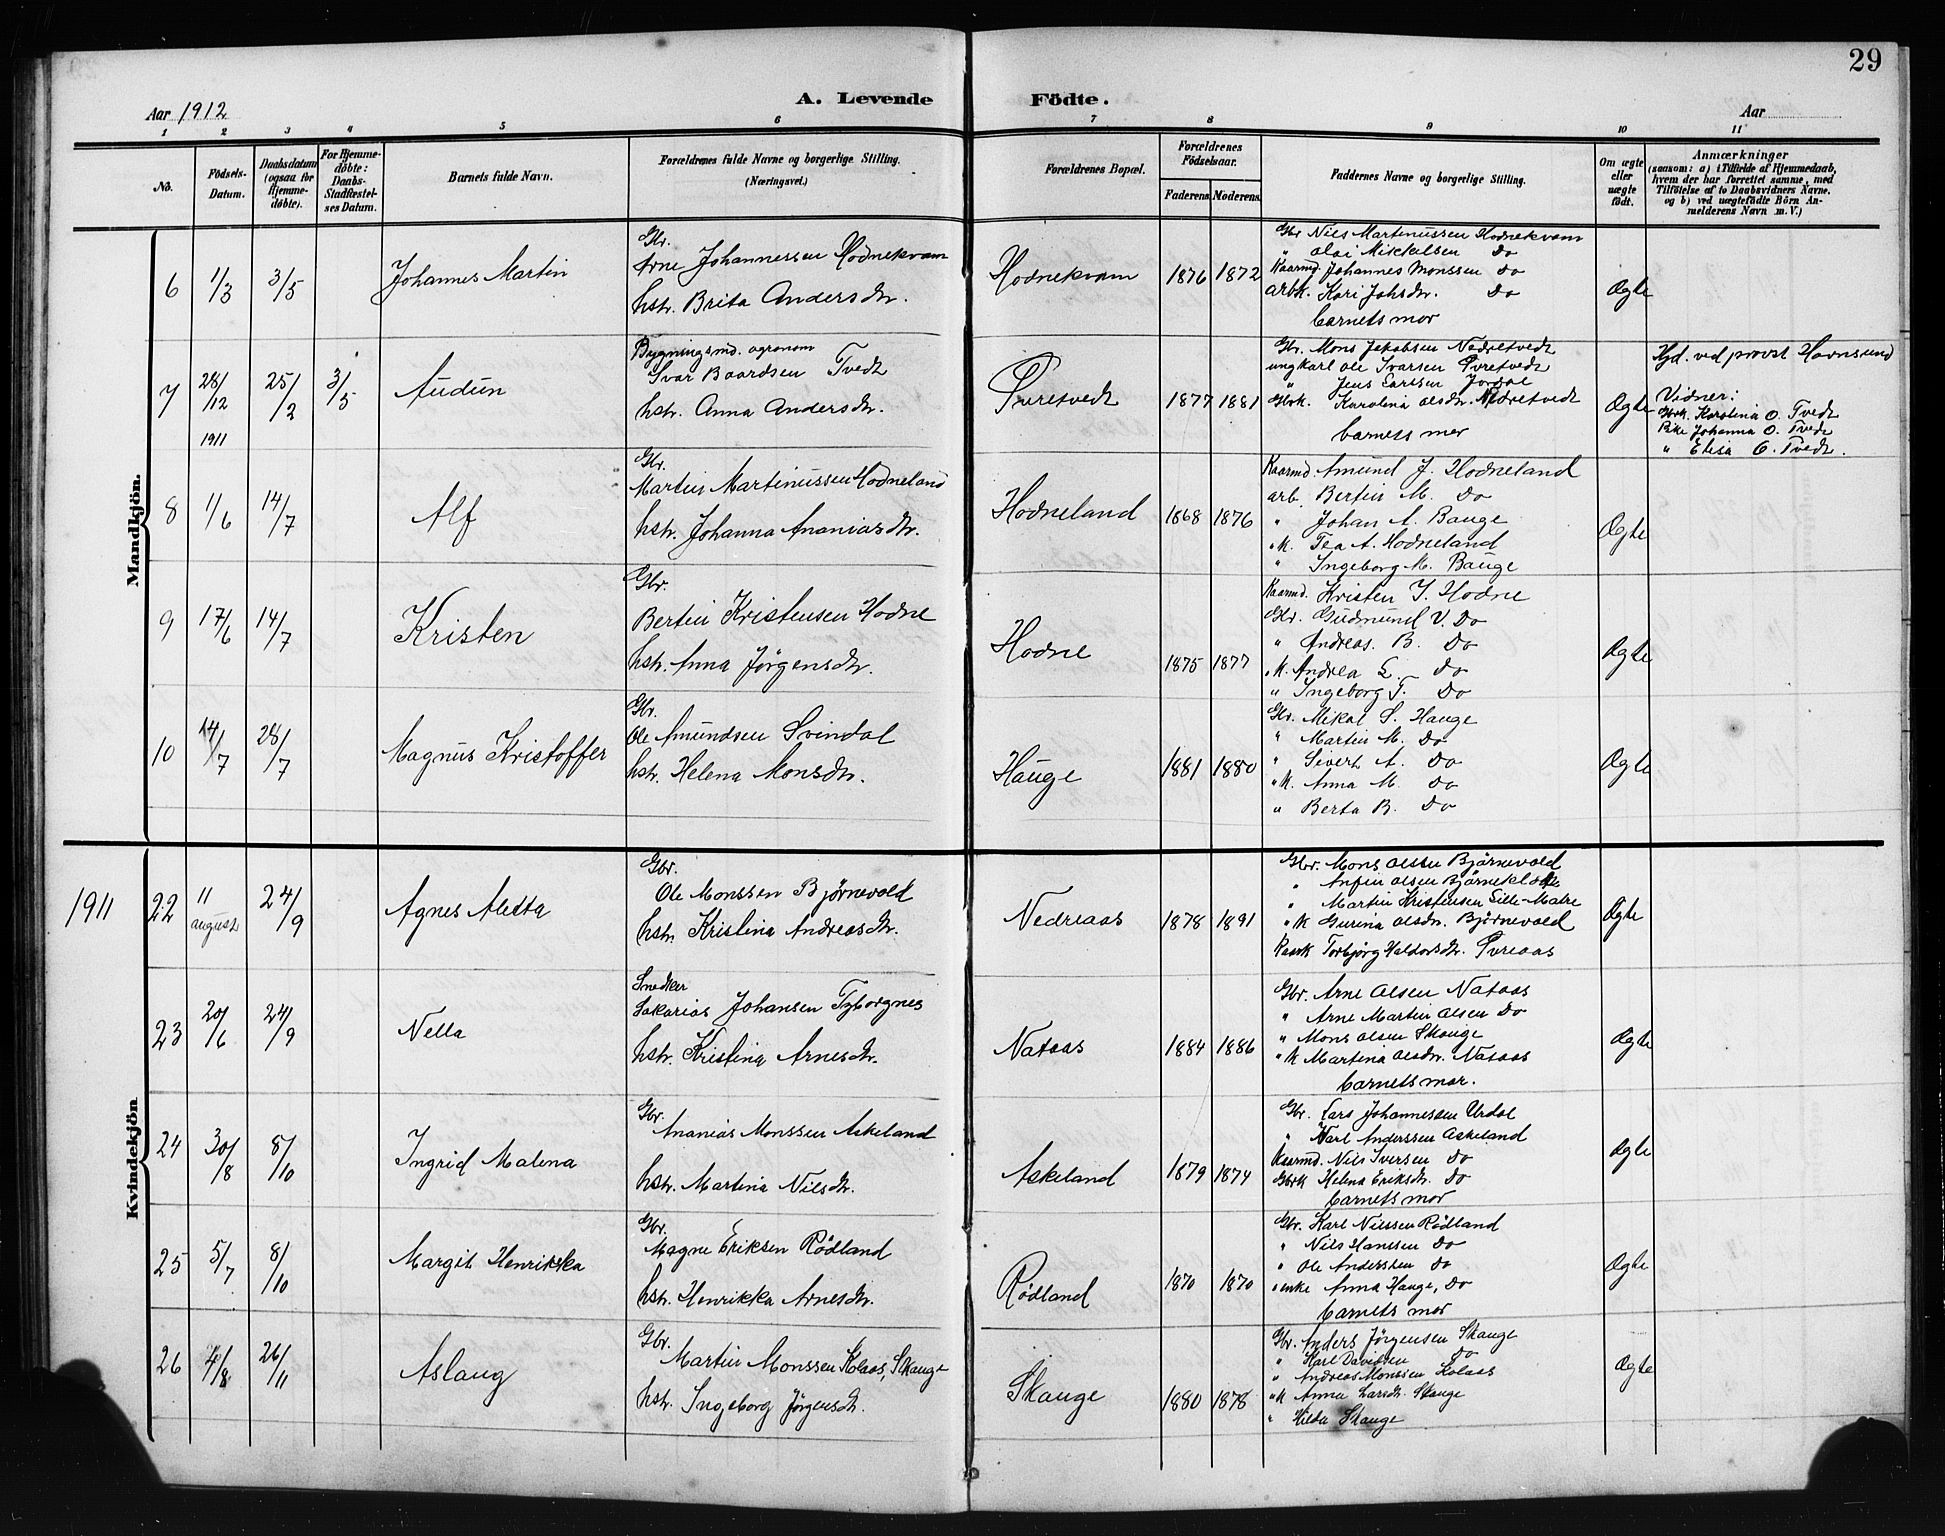 29
Aar 1912
A. Levende Födte.
Aar
1 2 3 4 5 6 7 8 9 10 11
No. Födsels-Datum. Daabsdatum (ogsaa for Hjemme-döbte). For Hjemme-döbte: Daabs-Stadfæstel-ses Datum. Barnets fulde Navn. Forældrenes fulde Navne og borgerlige Stilling. (Næringsvei.) Forældrenes Bopæl. Forældrenes Födselsaar. Faderens Moderens Faddernes Navne og borgerlige Stilling. Om ægte eller uægte födt. Anmærkninger (saasom: a) i Tilfælde af Hjemmedaab, hvem der har forrettet samme, med Tilföielse af to Daabsvidners Navne, og b) ved uægtefödte Börn An-melderens Navn m. V.)
Mandkjön.
6 1/3 3/5 Johannes Martin
Gbr.
Arne Johannessen Hodnekvam
hstr. Brita Andersdtr.
Hodnekvam 1876 1872
Gbr Nils Martinussen Hodnekvam
" Olai Mickelsen Do
Kaarmd. Johannes Monssen Do
arbk. Kari Johsdtr. Do
barnets mor
Ægte
7 28/12 1911 25/2 3/5 Audun
Bygningsmd. agronom
Ivar Baardsen Tvedt
hstr. Anna Andersdtr.
Øvretvedt 1877 1881
Gbr. Mons Jakobsen Nedretvedt
ungkarl Ole Ivarsen Øvretvedt
" Jens Larsen Jordal
Gbrk. Karolina Olsdtr. Nedretvedt
barnets mor
Ægte
Hjd. ved provst Havnsund
Vidner:
Gbrk. Karolina O. Tvedt
Pike Johanna O. Tvedt
" Elisa O. Tvedt.
8 1/6 14/7 Alf
Gbr.
Martin Martinussen Hodneland
hstr. Johanna Ananiasdtr.
Hodneland 1868 1876
Kaarmd. Amund J. Hodneland
arb. Bertin M. Do
" Johan A. Bauge
"k. Tea A. Hodneland
" Ingeborg M. Bauge
Ægte
9 17/6 14/7 Kristen
Gbr.
Bertin Kristensen Hodne
hstr. Anna Jørgensdtr.
Hodne 1875 1877
Kaarmd. Kristen J. Hodne
Gbr. Gudmund V. Do
" Andreas. B. Do
"k. Andrea L. Do
" Ingeborg T. Do
Ægte
10 14/7 28/7 Magnus Kristoffer
Gbr.
Ole Amundsen Svindal
hstr. Helena Monsdtr.
Hauge 1881 1880
Gbr. Mikal S. Hauge
" Martin M. Do
" Sivert A. Do
"k. Anna M. Do
" Berta B. Do
Ægte
Kvindekjön
1911
22 11 august 24/9 Agnes Aletta
Gbr.
Ole Monssen Bjørnevold
hstr. Kristina Andreasdtr.
Nedreaas 1878 1891
Gbr. Mons Olsen Bjørnevold
" Anfin Olsen
" Martin Kristensen Lille-Matre
"k Gurina Olsdtr. Bjørnevold
Kaark Torbjørg Haldorsdtr. Øvreaas
Ægte
23 20/6 24/9 Nella
Snedker
Sakarias Johansen Tyborgnes
hstr. Kristina Arnesdtr.
Nataas 1884 1886
Gbr. Arne Olsen Nataas
" Arne Martin Olsen Do
" Mons Olsen Skauge
"k Martina Olsdtr. Nataas
barnets mor.
Ægte
24 30/8 8/10 Ingrid Malena
Gbr.
Ananias Monssen Askeland
hstr. Martina Nilsdtr.
Askeland 1879 1874
Gbr. Lars Johannessen Urdal
" Karl Anderssen Askeland
Kaarmd. Nils Iversen Do
Gbrk Helena Eriksdtr. Do
barnets mor
Ægte
25 5/7 8/10 Margit Henrikka
Gbr.
Magne Eriksen Rødland
hstr. Henrikka Arnesdtr.
Rødland 1870 1870
Gbr. Karl Nilssen Rødland
" Nils Hanssen Do
" Ole Anderssen Do
enke Anna Hauge, Do
barnets mor
Ægte
26 4/8 26/11 Aslaug
Gbr.
Martin Monssen Kolaas, Skauge
hstr. Ingeborg Jørgensdtr.
Skauge 1880 1878
Gbr. Anders Jørgensen Skauge
" Karl Davidsen Do
" Andreas Monssen Kolaas
"k Anna Larsdtr. Skauge
" Hilda Skauge
Ægte